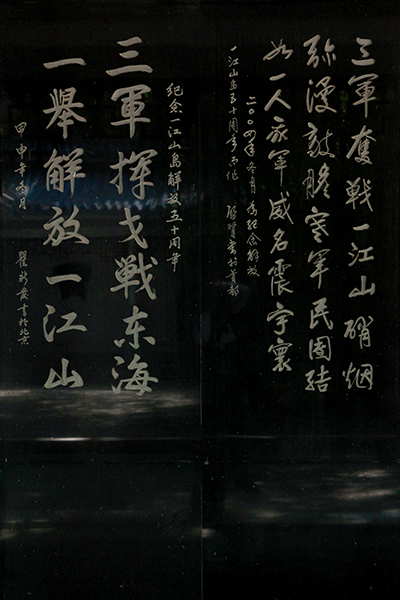 三軍奮戰一江山硝烟
弥漫敵膽寒軍民团结
如一人我軍威名震宇寰
二〇〇四年冬月为纪念解放
一江山岛五十周年而作 书於首都
纪念一江山岛解放五十周年
三軍挥戈戰东海
一舉解放一江山
甲申年冬月 瞿 書於北京